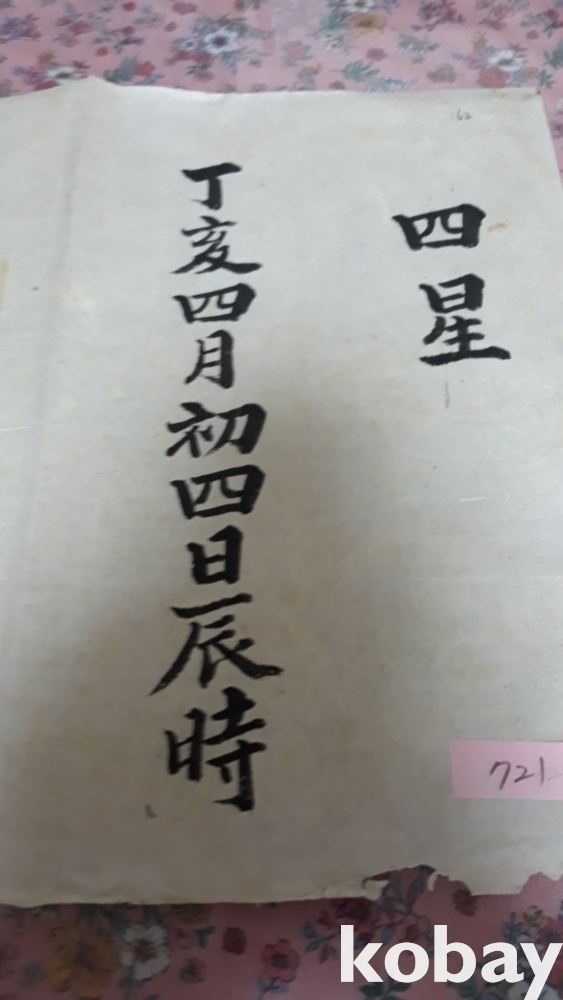 162
四星
丁亥四月初四日辰時
721
kobay